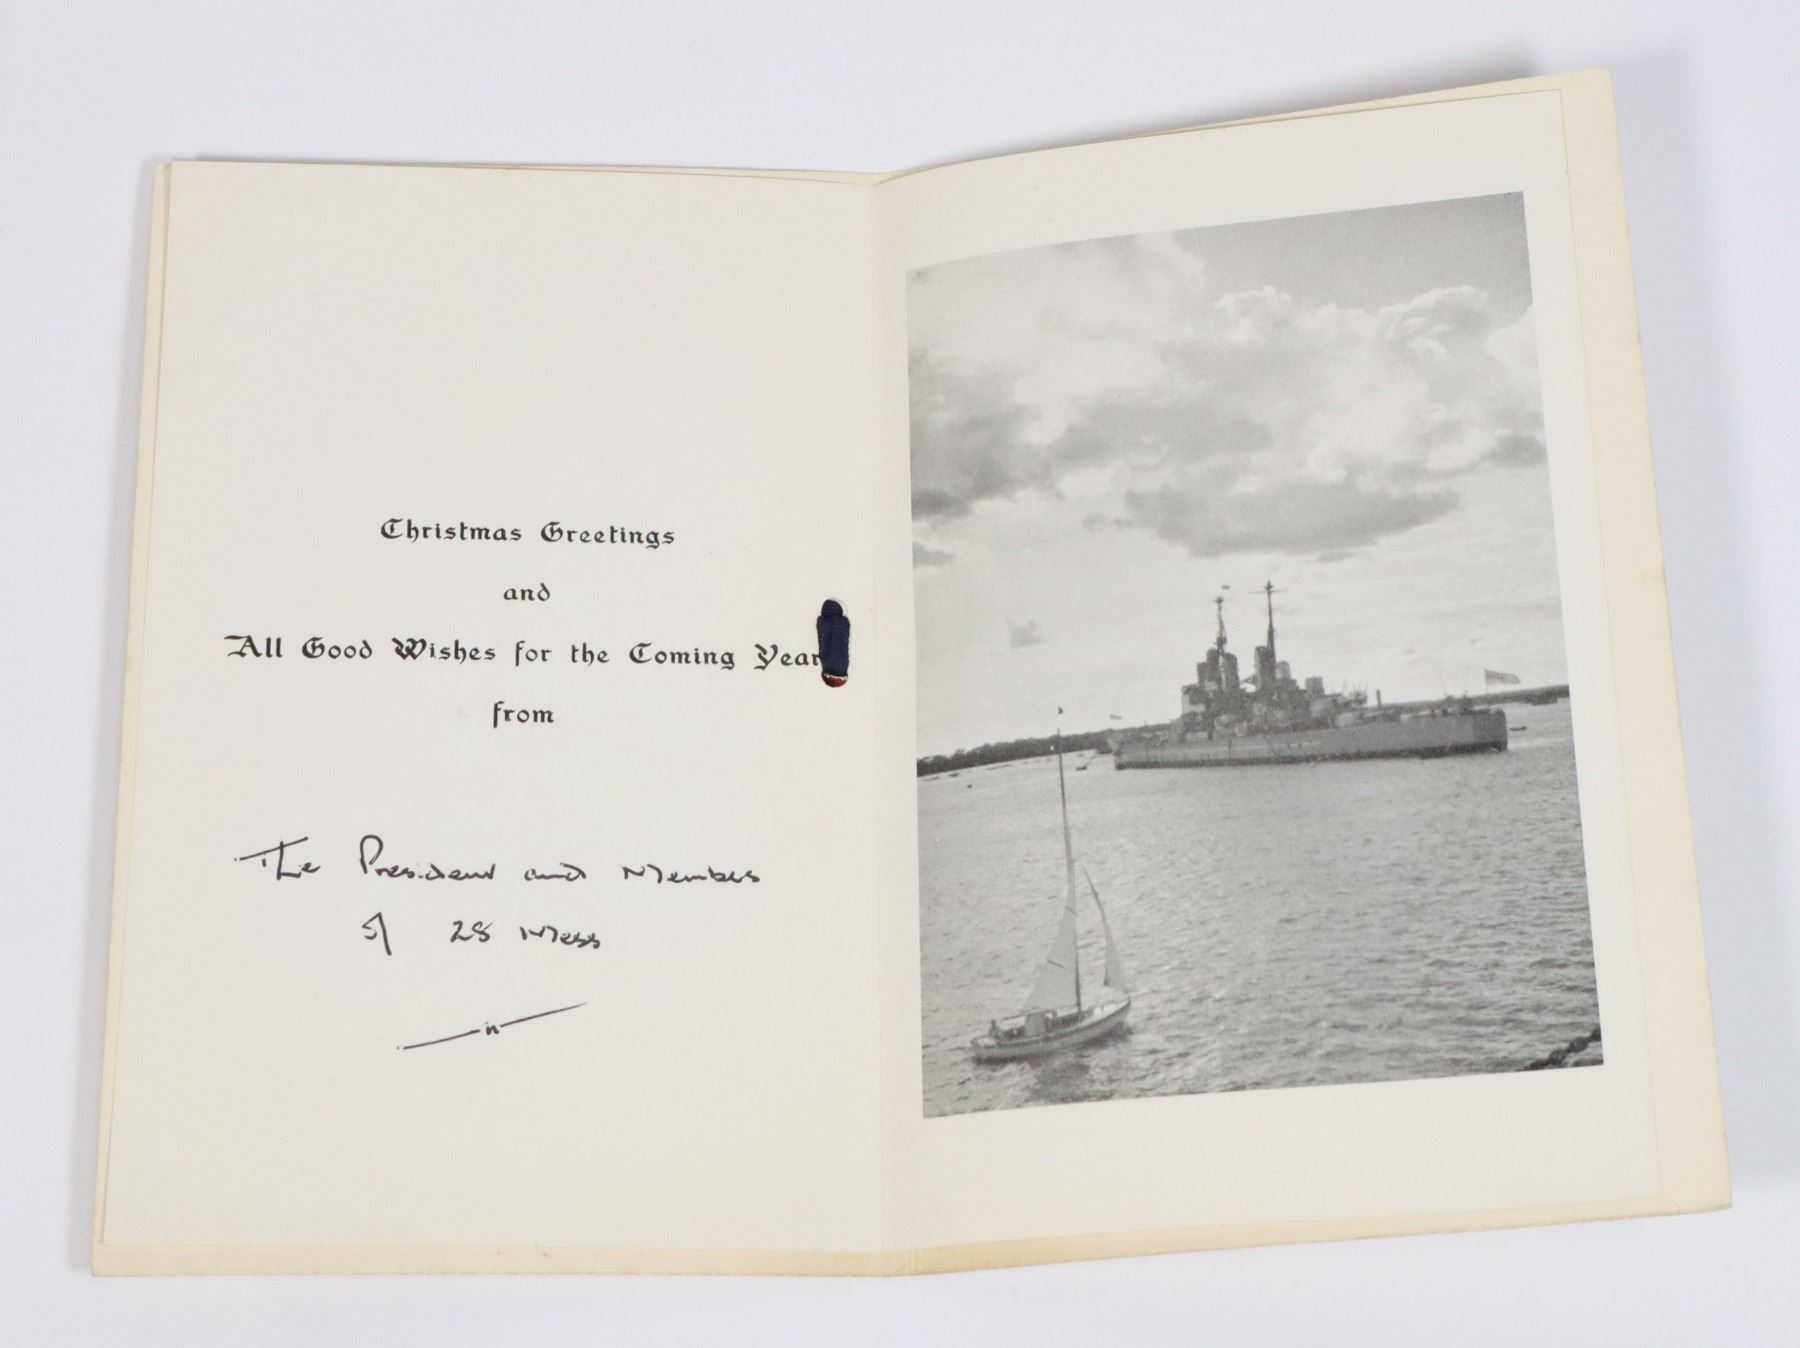 Christmas Greetings
and
All Good Wishes for the Coming Year
from
The President and Members
of 28 Mess